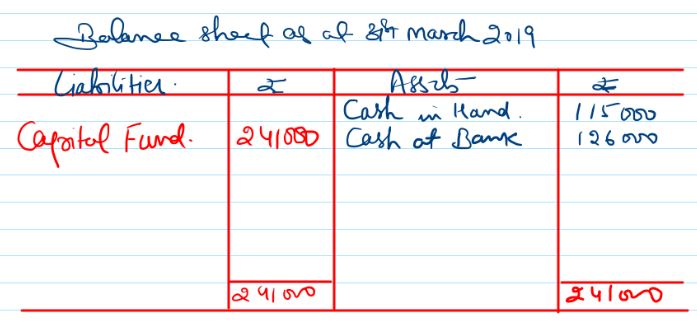 Balance sheet as at 31st March 2019
Liabilities. ₹ Assets ₹
Cash in Hand. 115000
Capital Fund. 241000 Cash at Bank 126000
241000 241000